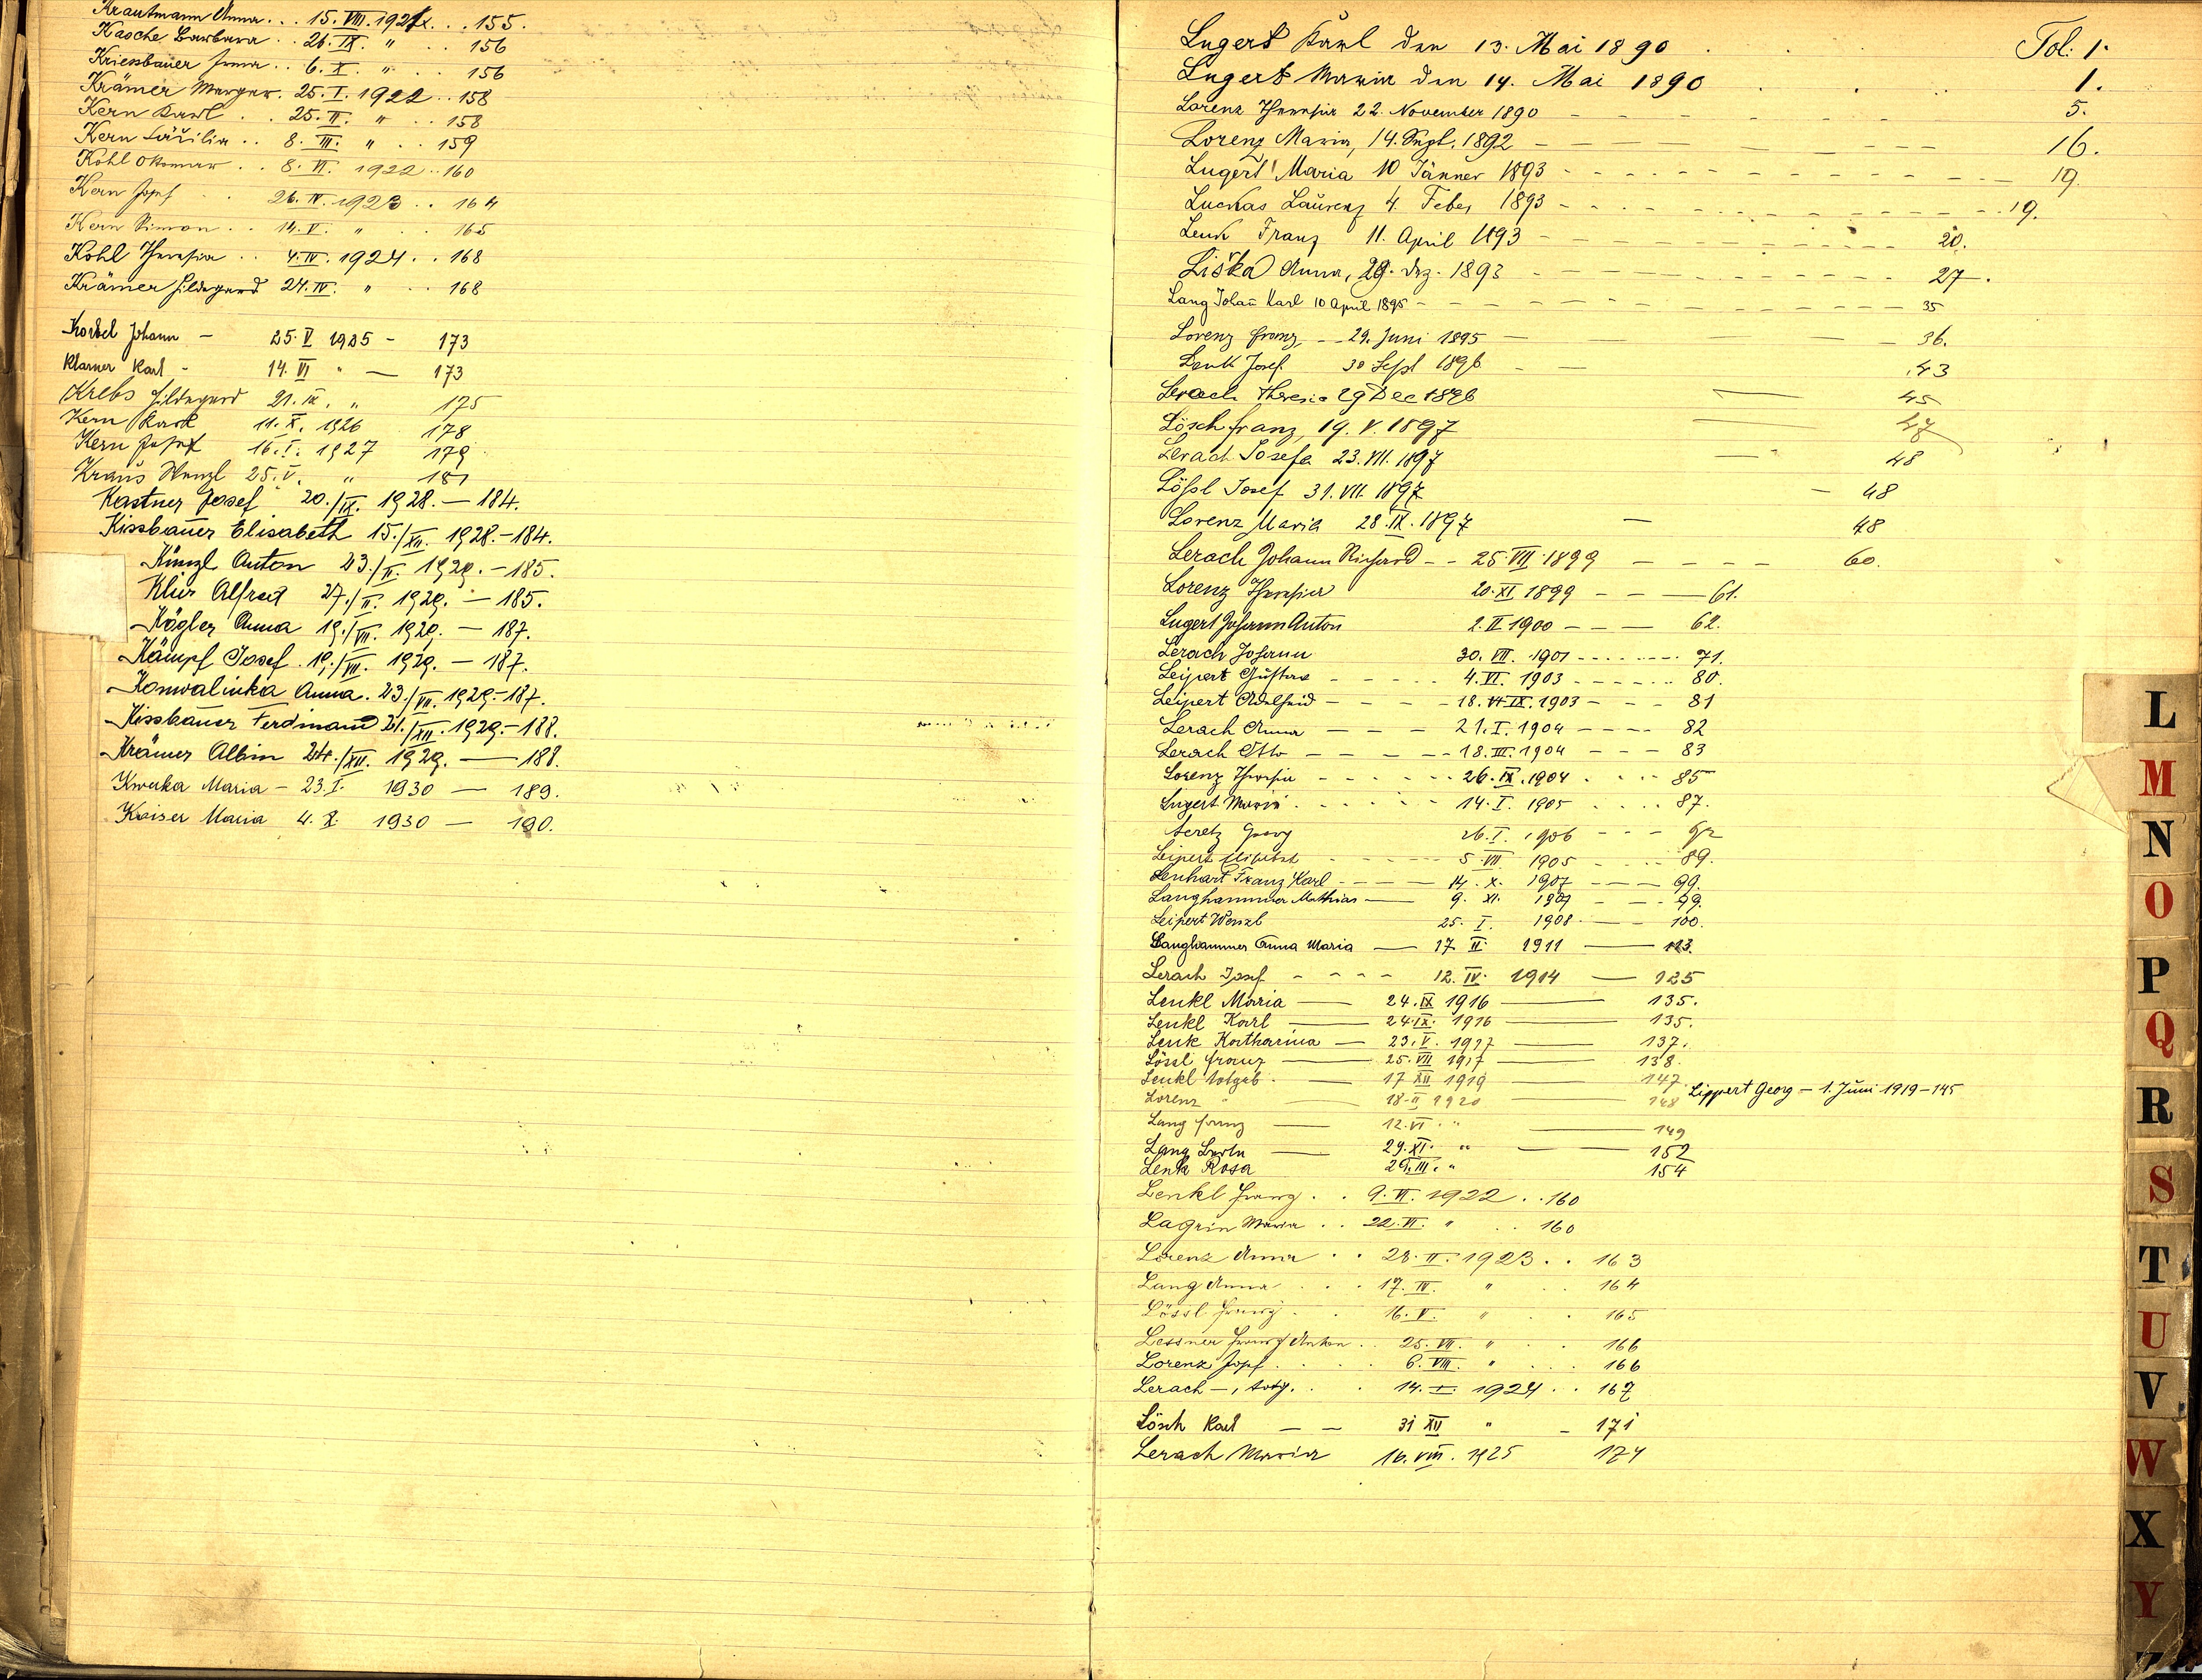 Krautmann Anna . . . 15. VIII. 1921 . . . 155.
Kasche Barbara . . 26. IX. " . . 156
Kriessbauer Anna . . 6. X. " . . 156
Krämer Margar. 25. I. 1922 . . 158
Kern Karl . . 25. II. " . . 158
Kern Cäzilia . . 8. III. " . . 159
Kohl Ottomar . . 8. VI. 1922 . . 160
Kern Josef . . 26. IV. 1923 . . 164
Kern Simon . . 14. V. " . . 165
Kohl Theresia . . 4. IV. 1924 . . 168
Krämer Hildegard 24. IV. " . . 168
Johann - 25. V 1925 - 173
Klarner Karl - 14. VI " — 173
Krebs Hildegard 21. IX. " 175
Kern Karl 11. X. 1926 178
Kern Josef 16. I. 1927 179
Kraus Wenzl 25. V. " 181
Kastner Josef 20./IX. 1928. — 184.
Kissbauer Elisabeth 15./XII. 1928. - 184.
Künzl Anton 23./II. 1929. - 185.
Klir Alfred 27./II. 1929. — 185.
Kögler Anna 19./VII. 1929. — 187.
Kämpf Josef. 19./VII. 1929. — 187.
Konwalinka Anna. 23./VII. 1929. - 187.
Kissbauer Ferdinand 21./XII. 1929. - 188.
Krämer Albin 24./XII. 1929. — 188.
Kwaka Maria - 23. I. 1930 — 189.
Kaiser Maria 4. X. 1930 — 190.
Lugert Karl den 13. Mai 1890 . . Fol: 1.
Lugert Maria den 14. Mai 1890 . . 1.
Lorenz Theresia 22. November 1890 - - 5.
Lorenz Maria, 14. Sept. 1892 - - 16.
Lugert Maria 10 Jänner 1893 - - 19.
Luckas Laurenz 4. Feber 1893 - - 19.
Lenk Franz 11. April 1893 - - 20.
Liška Anna, 29. Dez. 1893 - - 27.
Lang Johan Karl 10 April 1895 - - 35
Lorenz Franz, - - 29. Juni 1895 — 36.
Lenk Josef. 30 Sept 1896 - - 43
Lerach Theresia 29 Dec 1896 — 45
Lösch Franz, 19. V. 1897 — 47
Lerach Josefa 23. VII. 1897 — 48
Lößl Josef 31. VII. 1897 — 48
Lorenz Maria 28. IX. 1897 — 48
Lerach Johann Richard - - 25. VII. 1899 — 60.
Lorenz Theresia 20. XI. 1899 - - — 61.
Lugert Johann Anton 2. II. 1900 - - — 62.
Lerach Johann 30. VII. 1901 - - 71.
Leipert Gustav - - 4. VI. 1903 - - 80.
Leipert Adelheid - - 18. IX. 1903 - - 81
Lerach Anna - - 21. I. 1904 - - 82
Lerach Otto - - 18. III. 1904 - - 83
Lorenz Theresia - - 26. IX. 1904 . . 85
Lugert Maria . . 14. I. 1905 . . 87.
Georg 26. I. 1906 - -
Leipert - - 5. VII 1905 - - 89.
Lenhart Franz Karl - - 14. X. 1907 - - 99.
Langhammer Mathias — 9. XI. 1907 - - 99.
Leipert Wenzl 25. I. 1908 - - 100.
Langhammer Anna Maria — 17. II. 1911 — 113.
Lerach Josef - - 12. IV. 1914 — 125
Lenkl Maria — 24. IX 1916 — 135.
Lenkl Karl — 24. IX. 1916 — 135.
Lenk Katharina — 23. V. 1917 — 137.
Lössl Franz — 25. VII 1917 — 138.
Lenkl totgeb. — 17 XII 1919 — 147. Lippert Georg — 1. Juni 1919 — 145
Lorenz " — 18. II 1920 — 148
Lang Franz — 12. VI. " — 149
Lang Berta — 29. XI. " — 152
Lenk Rosa 29. III. " 154
Lenkl Franz . . 9. VI. 1922 . . 160
Lagrin Maria . . 22. VI. " . . 160
Lorenz Anna . . 28. II. 1923 . . 163
Lang Anna . . 17. IV. " . . 164
Lössl Franz . . 16. V. " . . 165
Lessner Franz Anton . . 25. VII. " . . 166
Lorenz Josef . . 6. VIII. " . . 166
Lerach —, totg. . . 14. I. 1924 . . 167
Lösch Karl — — 31 XII " - 171
Lerach Maria 16. VIII. 1925 174
L
M
N
O
P
Q
R
S
T
U
V
W
X
Y